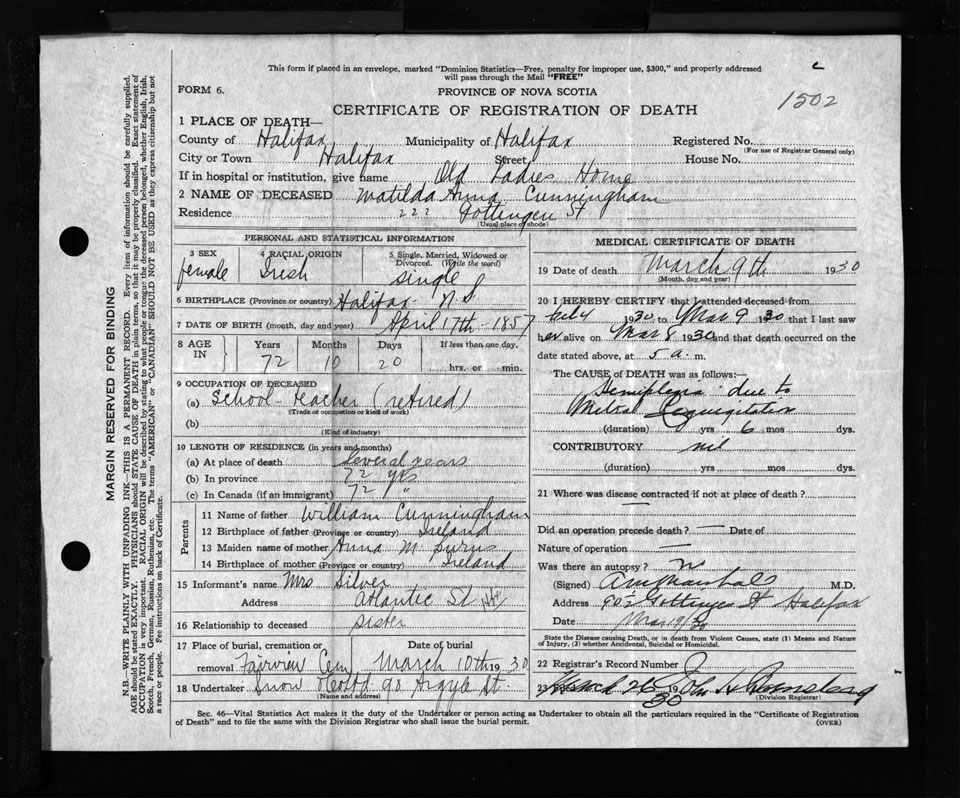 This form if placed in an envelope, marked "Dominion Statistics—Free, penalty for improper use, $300," and properly addressed
will pass through the Mail "FREE"
FORM 6.
PROVINCE OF NOVA SCOTIA
1502
CERTIFICATE OF REGISTRATION OF DEATH
1 PLACE OF DEATH—
County of Halifax Municipality of Halifax Registered No.
(For use of Registrar General only)
City or Town Halifax Street House No.
If in hospital or institution, give name Old Ladies Home
2 NAME OF DECEASED Matilda Anna Cunningham
Residence 222 Gottingen St
(Usual place of abode)
PERSONAL AND STATISTICAL INFORMATION
3 SEX female
4 RACIAL ORIGIN Irish
5 Single, Married, Widowed or Divorced. (Write the word) single
6 BIRTHPLACE (Province or country) Halifax N.S.
7 DATE OF BIRTH (month, day and year) April 17th - 1857
8 AGE IN Years Months Days If less than one day,
72 10 20 hrs. or min.
9 OCCUPATION OF DECEASED
(a) School-teacher (retired)
(Trade or occupation or kind of work)
(b)
(Kind of industry)
10 LENGTH OF RESIDENCE (in years and months)
(a) At place of death Several years
(b) In province 72 yrs
(c) In Canada (if an immigrant) 72 "
Parents
11 Name of father William Cunningham
12 Birthplace of father (Province or country) Ireland
13 Maiden name of mother Anna M Burns
14 Birthplace of mother (Province or country) Ireland
15 Informant's name Mrs Silver
Address Atlantic St Hfx
16 Relationship to deceased sister
17 Place of burial, cremation or Date of burial
removal Fairview Cem March 10th 1930
18 Undertaker Snow & Co Ltd 90 Argyle St.
(Name and address)
MEDICAL CERTIFICATE OF DEATH
19 Date of death March 9th 1930
(Month, day and year)
20 I HEREBY CERTIFY that I attended deceased from
1930 to Mar 9 1930 that I last saw
her alive on Mar 8 1930 and that death occurred on the
date stated above, at 5 a. m.
The CAUSE OF DEATH was as follows:—
Hemiplegia due to
Mitral Regurgitation
(duration) yrs 6 mos dys.
CONTRIBUTORY nil
(duration) yrs mos dys.
21 Where was disease contracted if not at place of death?
Did an operation precede death? — Date of
Nature of operation —
Was there an autopsy?
(Signed) M.D.
Address 90½ Gottingen St Halifax
Date Mar 19/30
State the Disease causing Death, or in death from Violent Causes, state (1) Means and Nature
of Injury, (2) whether Accidental, Suicidal or Homicidal.
22 Registrar's Record Number
23 March 26 1930 John
(Division Registrar)
Sec. 46—Vital Statistics Act makes it the duty of the Undertaker or person acting as Undertaker to obtain all the particulars required in the "Certificate of Registration
of Death" and to file the same with the Division Registrar who shall issue the burial permit.
(OVER)
MARGIN RESERVED FOR BINDING
N.B.—WRITE PLAINLY WITH UNFADING INK—THIS IS A PERMANENT RECORD. Every item of information should be carefully supplied.
AGE should be stated EXACTLY. PHYSICIANS should STATE CAUSE OF DEATH in plain terms, so that it may be properly classified. Exact statement of
OCCUPATION is very important. RACIAL ORIGIN will be described by stating to what people or tongue the deceased person belonged, whether English, Irish,
Scotch, French, German, Russian, Ruthenian, etc. The terms "AMERICAN" or "CANADIAN" SHOULD NOT BE USED as they express citizenship but not
a race or people. Fee instructions on back of Certificate.